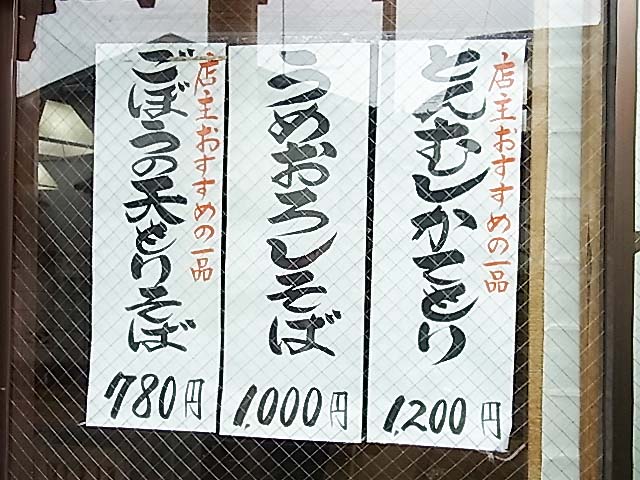 店主おすすめの一品
とんむしかてもり
1,200円
うめおろしそば
1,000円
店主おすすめの一品
ごぼうの天もりそば
780円